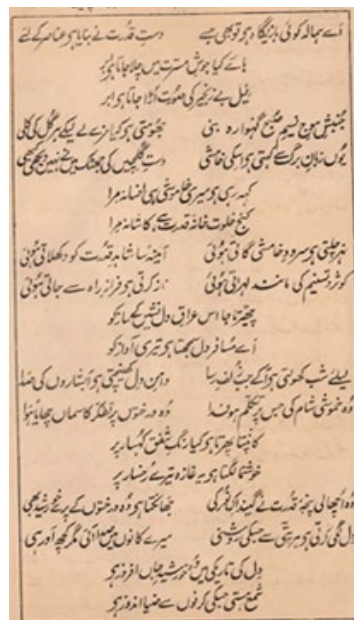 اے ہمالہ کوئی بازیگاہ ہو تو بھی جسے دستِ قدرت نے بنایا ہو عناصر کے لئے
ہائے کیا جوشِ مسرت میں چلا جاتا ہو ابر
فیل بے زنجیر کی صورت اڑا جاتا ہو ابر
جنبشِ موجِ نسیمِ صبح گہوارہ بنی جھومتی ہو کیا مزے لے لیکے ہر گل کی کلی
یوں زبانِ برگ سے کہتی ہو اسکی خامشی دستِ گلچیں کی جھٹک میں نے نہیں دیکھی کبھی
کہہ رہی ہو میری خاموشی ہی افسانہ مرا
کنجِ خلوت خانۂ قدرت ہے کاشانہ مرا
نہر چلتی ہو سرودِ خامشی گاتی ہوئی آئینہ سا شاہدِ قدرت کو دکھلاتی ہوئی
کوثر و تسنیم کی مانند لہراتی ہوئی ناز کرتی ہو فرازِ راہ سے جاتی ہوئی
چھیڑتا جا اس عراقِ دل نشیں کے ساز کو
اے مسافر دل سمجھتا ہو تیری آواز کو
لیلئے شب کھولتی ہو آکے جب زلفِ رسا دامنِ دل کھینچتی ہو آبشاروں کی صدا
وہ خموشی شام کی جس پر تکلم ہو فدا وہ درختوں پر تفکر کا سماں چھایا ہوا
کانپتا پھرتا ہو کیا رنگِ شفق کہسار پر
خوشنما لگتا ہو یہ غازہ تیرے رخسار پر
وہ اچھالی پنجۂ قدرت نے گیند اک نور کی جھانکتا ہو وہ درختوں کے پرے خورشید بھی
دل لگی کرتی ہو ہر پتی سے جسکی روشنی میرے کانوں میں صدا آئی مگر کچھ اور ہی
دل کی تاریکی میں وہ خورشیدِ جاں افروز ہو
شمعِ ہستی جسکی کرنوں سے ضیا اندوز ہو